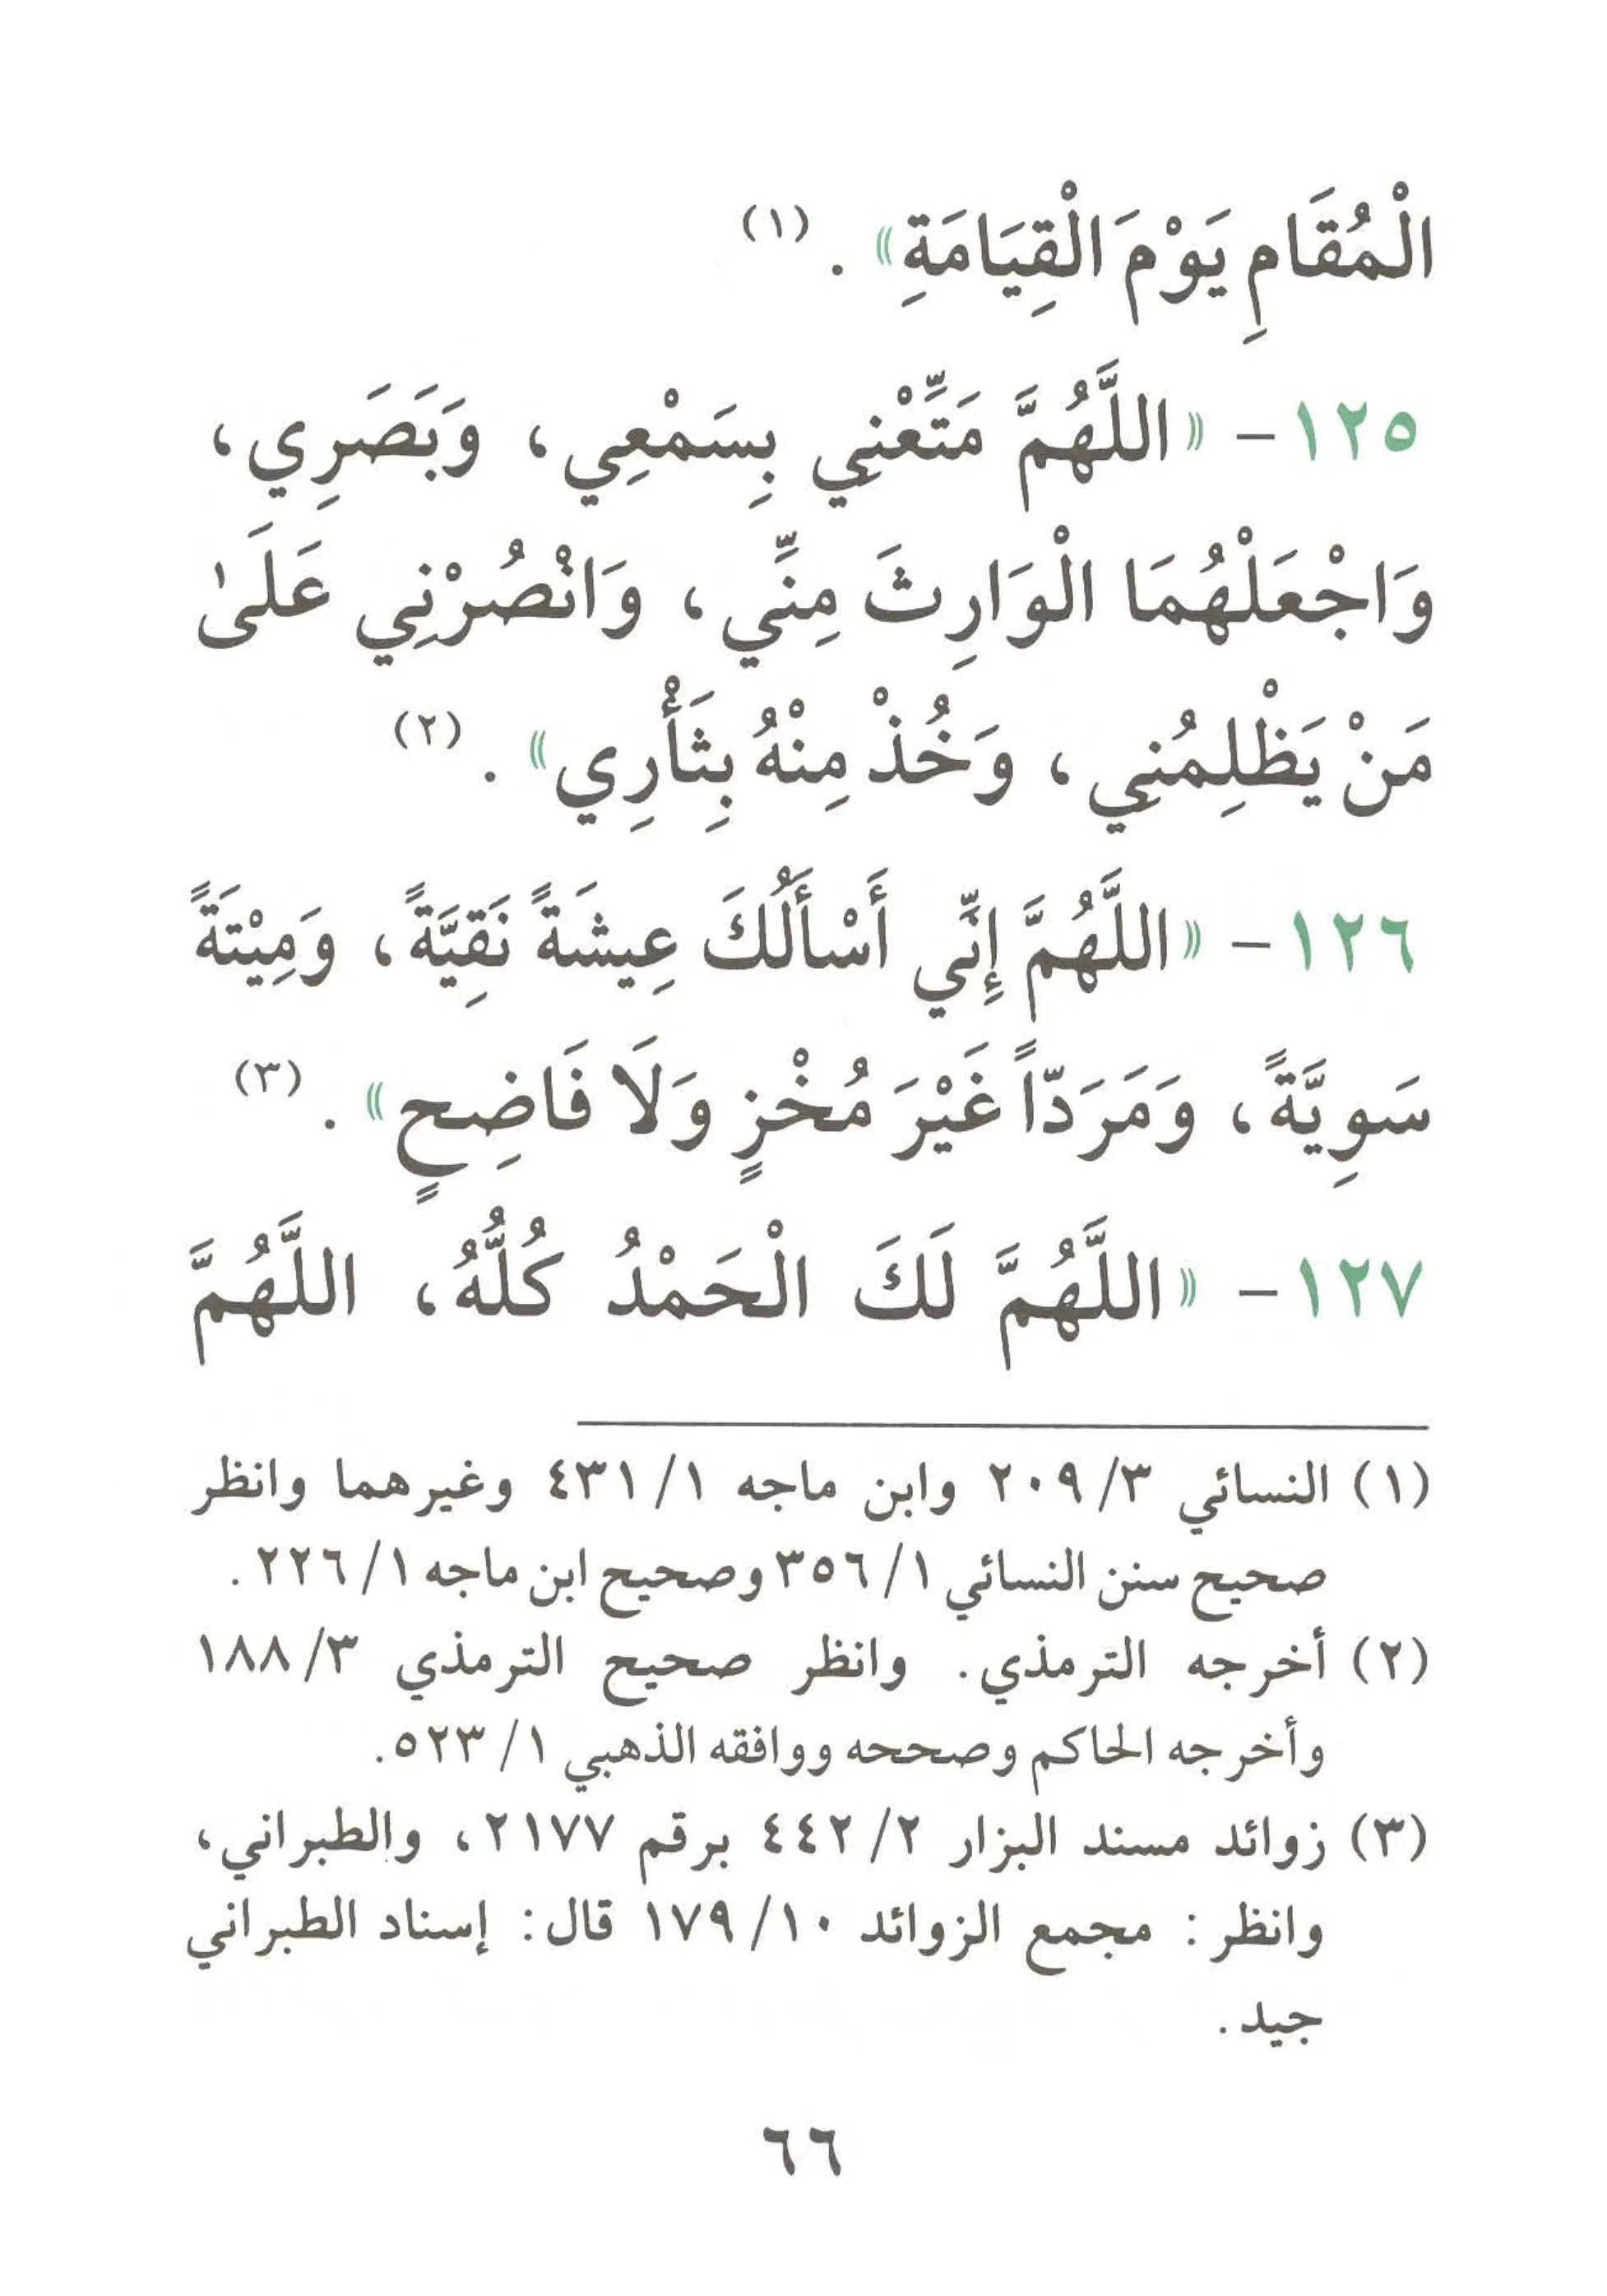 الْمُقَامِ يَوْمَ الْقِيَامَةِ» . (١)
١٢٥- «اللَّهُمَّ مَتِّعْنِي بِسَمْعِي، وَبَصَرِي،
وَاجْعَلْهُمَا الْوَارِثَ مِنِّي، وَانْصُرْنِي عَلَىٰ
مَنْ يَظْلِمُنِي، وَخُذْ مِنْهُ بِثَأْرِي» . (٢)
١٢٦- «اللَّهُمَّ إِنِّي أَسْأَلُكَ عِيشَةً نَقِيَّةً، وَمِيْتَةً
سَوِيَّةً، وَمَرَدّاً غَيْرَ مُخْزٍ وَلَا فَاضِحٍ» . (٣)
١٢٧- «اللَّهُمَّ لَكَ الْحَمْدُ كُلُّهُ، اللَّهُمَّ
(١) النسائي ٣/ ٢٠٩ وابن ماجه ١/ ٤٣١ وغيرهما وانظر
صحيح سنن النسائي ١/ ٣٥٦ وصحيح ابن ماجه ١/ ٢٢٦ .
(٢) أخرجه الترمذي. وانظر صحيح الترمذي ٣/ ١٨٨
وأخرجه الحاكم وصححه ووافقه الذهبي ١/ ٥٢٣.
(٣) زوائد مسند البزار ٢/ ٤٤٢ برقم ٢١٧٧، والطبراني،
وانظر: مجمع الزوائد ١٠/ ١٧٩ قال: إسناد الطبراني
جيد.
٦٦